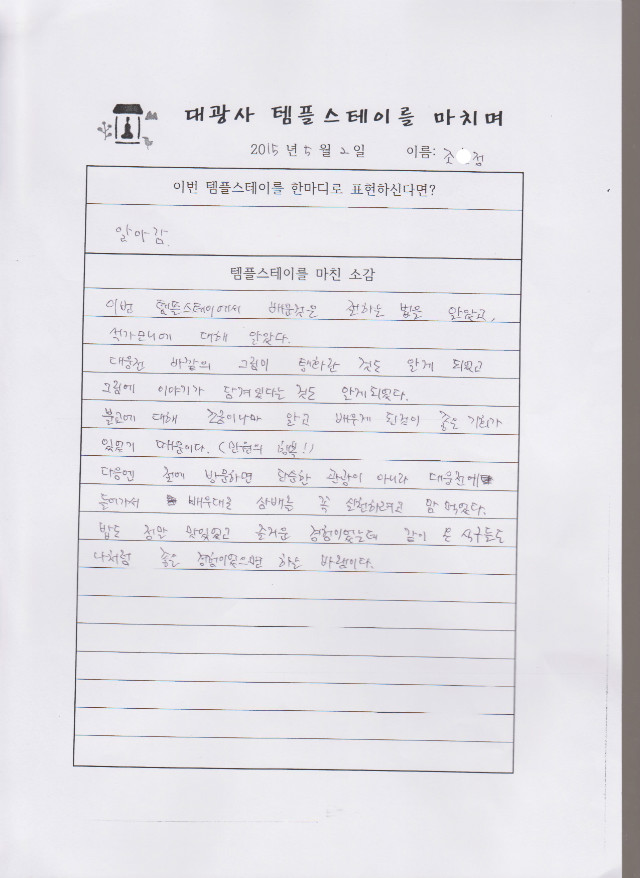 대광사 템플스테이를 마치며
2015 년 5 월 2 일 이름: 조 정
이번 템플스테이를 한마디로 표현하신다면?
알아감.
템플스테이를 마친 소감
이번 템플스테이에서 배운것은 절하는 법을 알았고,
석가모니에 대해 알았다.
대웅전 바깥의 그림이 탱화란 것도 알게 되었고
그림에 이야기가 담겨있다는 것도 알게되었다.
불교에 대해 조금이나마 알고 배우게 된점이 좋은 기회가
있었기 때문이다. (만원의 행복!)
다음엔 절에 방문하면 단순한 관광이 아니라 대웅전에
들어가서 배우대로 삼배를 꼭 실천하려고 맘 먹었다.
밥도 정말 맛있었고 즐거운 경험이었는데 같이 온 식구들도
나처럼 좋은 경험이었으면 하는 바램이다.